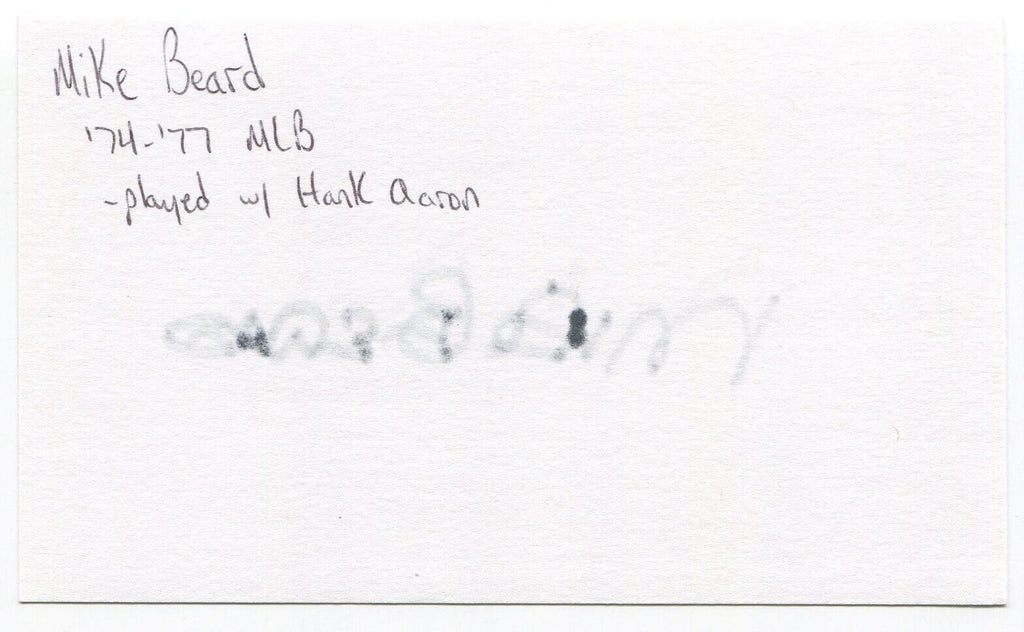 Mike Beard
'74-'77 MLB
-played w/ Hank Aaron